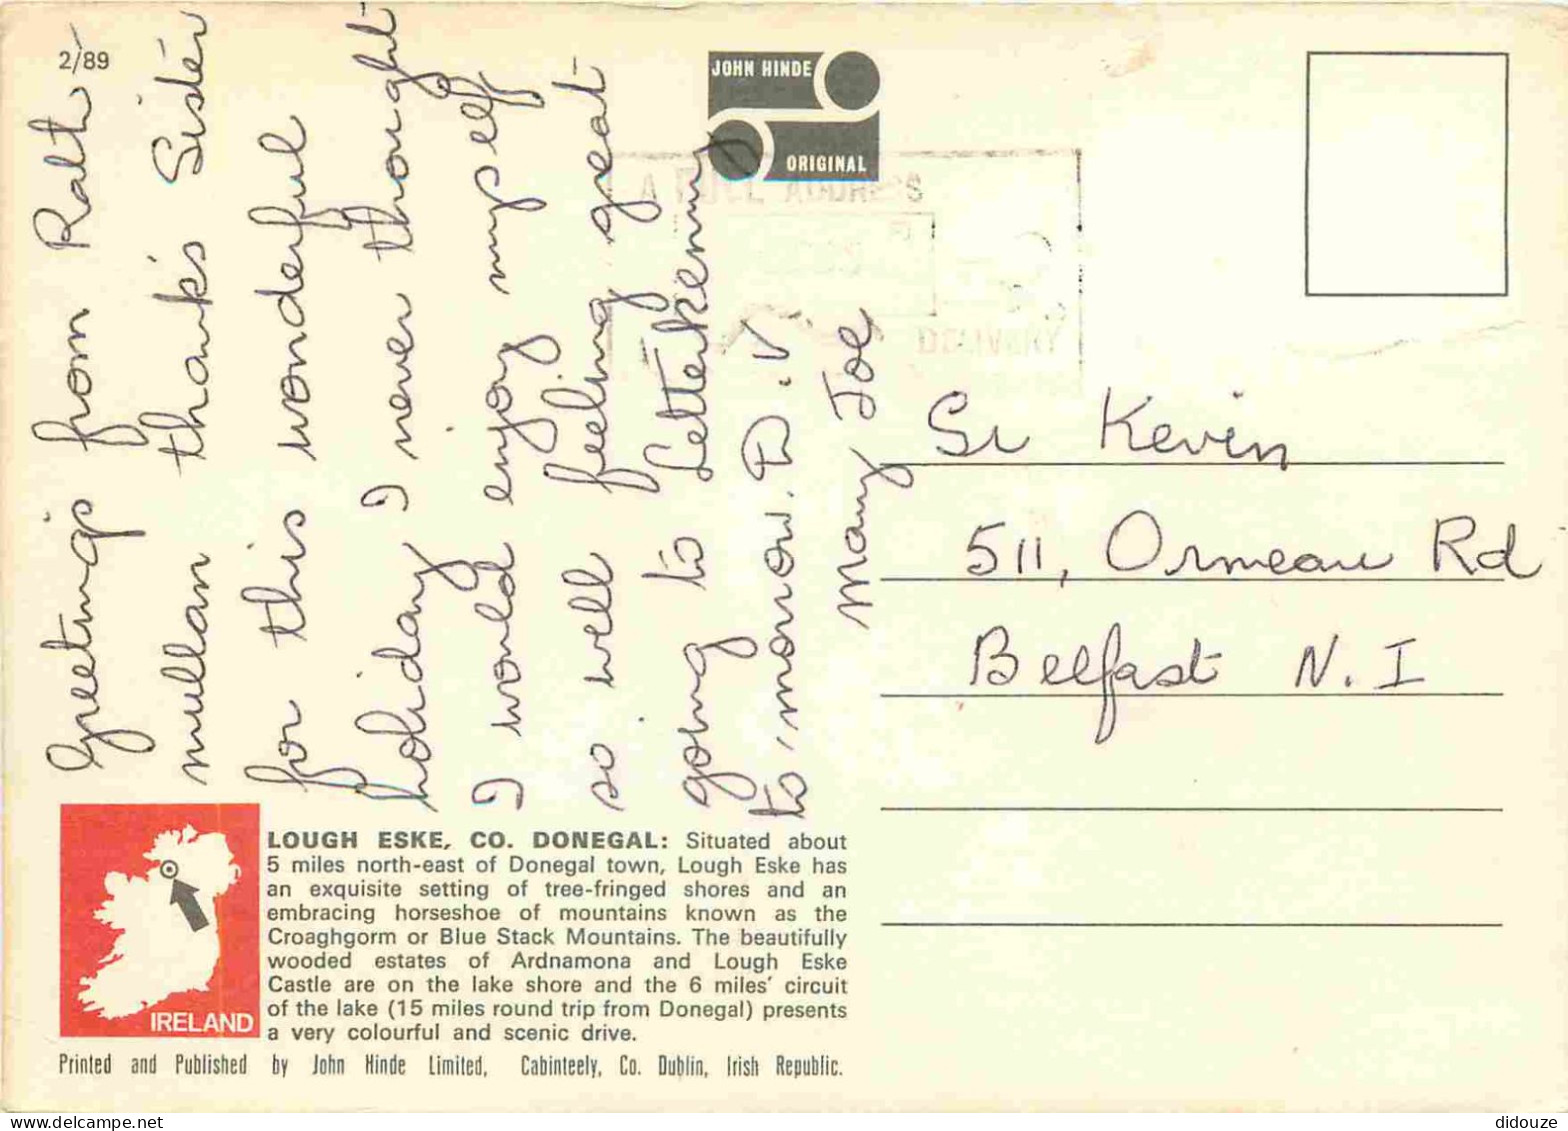 2/89
Greeting's from Rath
mullan thank's Sister
for this wonderful
holiday I never thought
I would enjoy myself
so well feeling great
going to Letterkenny
to'morrow. D.V
Mary Joe
JOHN HINDE
ORIGINAL
A FULL ADDRESS
DELIVERY
Sr Kevin
511, Ormeau Rd
Belfast N.I
IRELAND
LOUGH ESKE, CO. DONEGAL: Situated about
5 miles north-east of Donegal town, Lough Eske has
an exquisite setting of tree-fringed shores and an
embracing horseshoe of mountains known as the
Croaghgorm or Blue Stack Mountains. The beautifully
wooded estates of Ardnamona and Lough Eske
Castle are on the lake shore and the 6 miles' circuit
of the lake (15 miles round trip from Donegal) presents
a very colourful and scenic drive.
Printed and Published by John Hinde Limited, Cabinteely, Co. Dublin, Irish Republic.
didouze